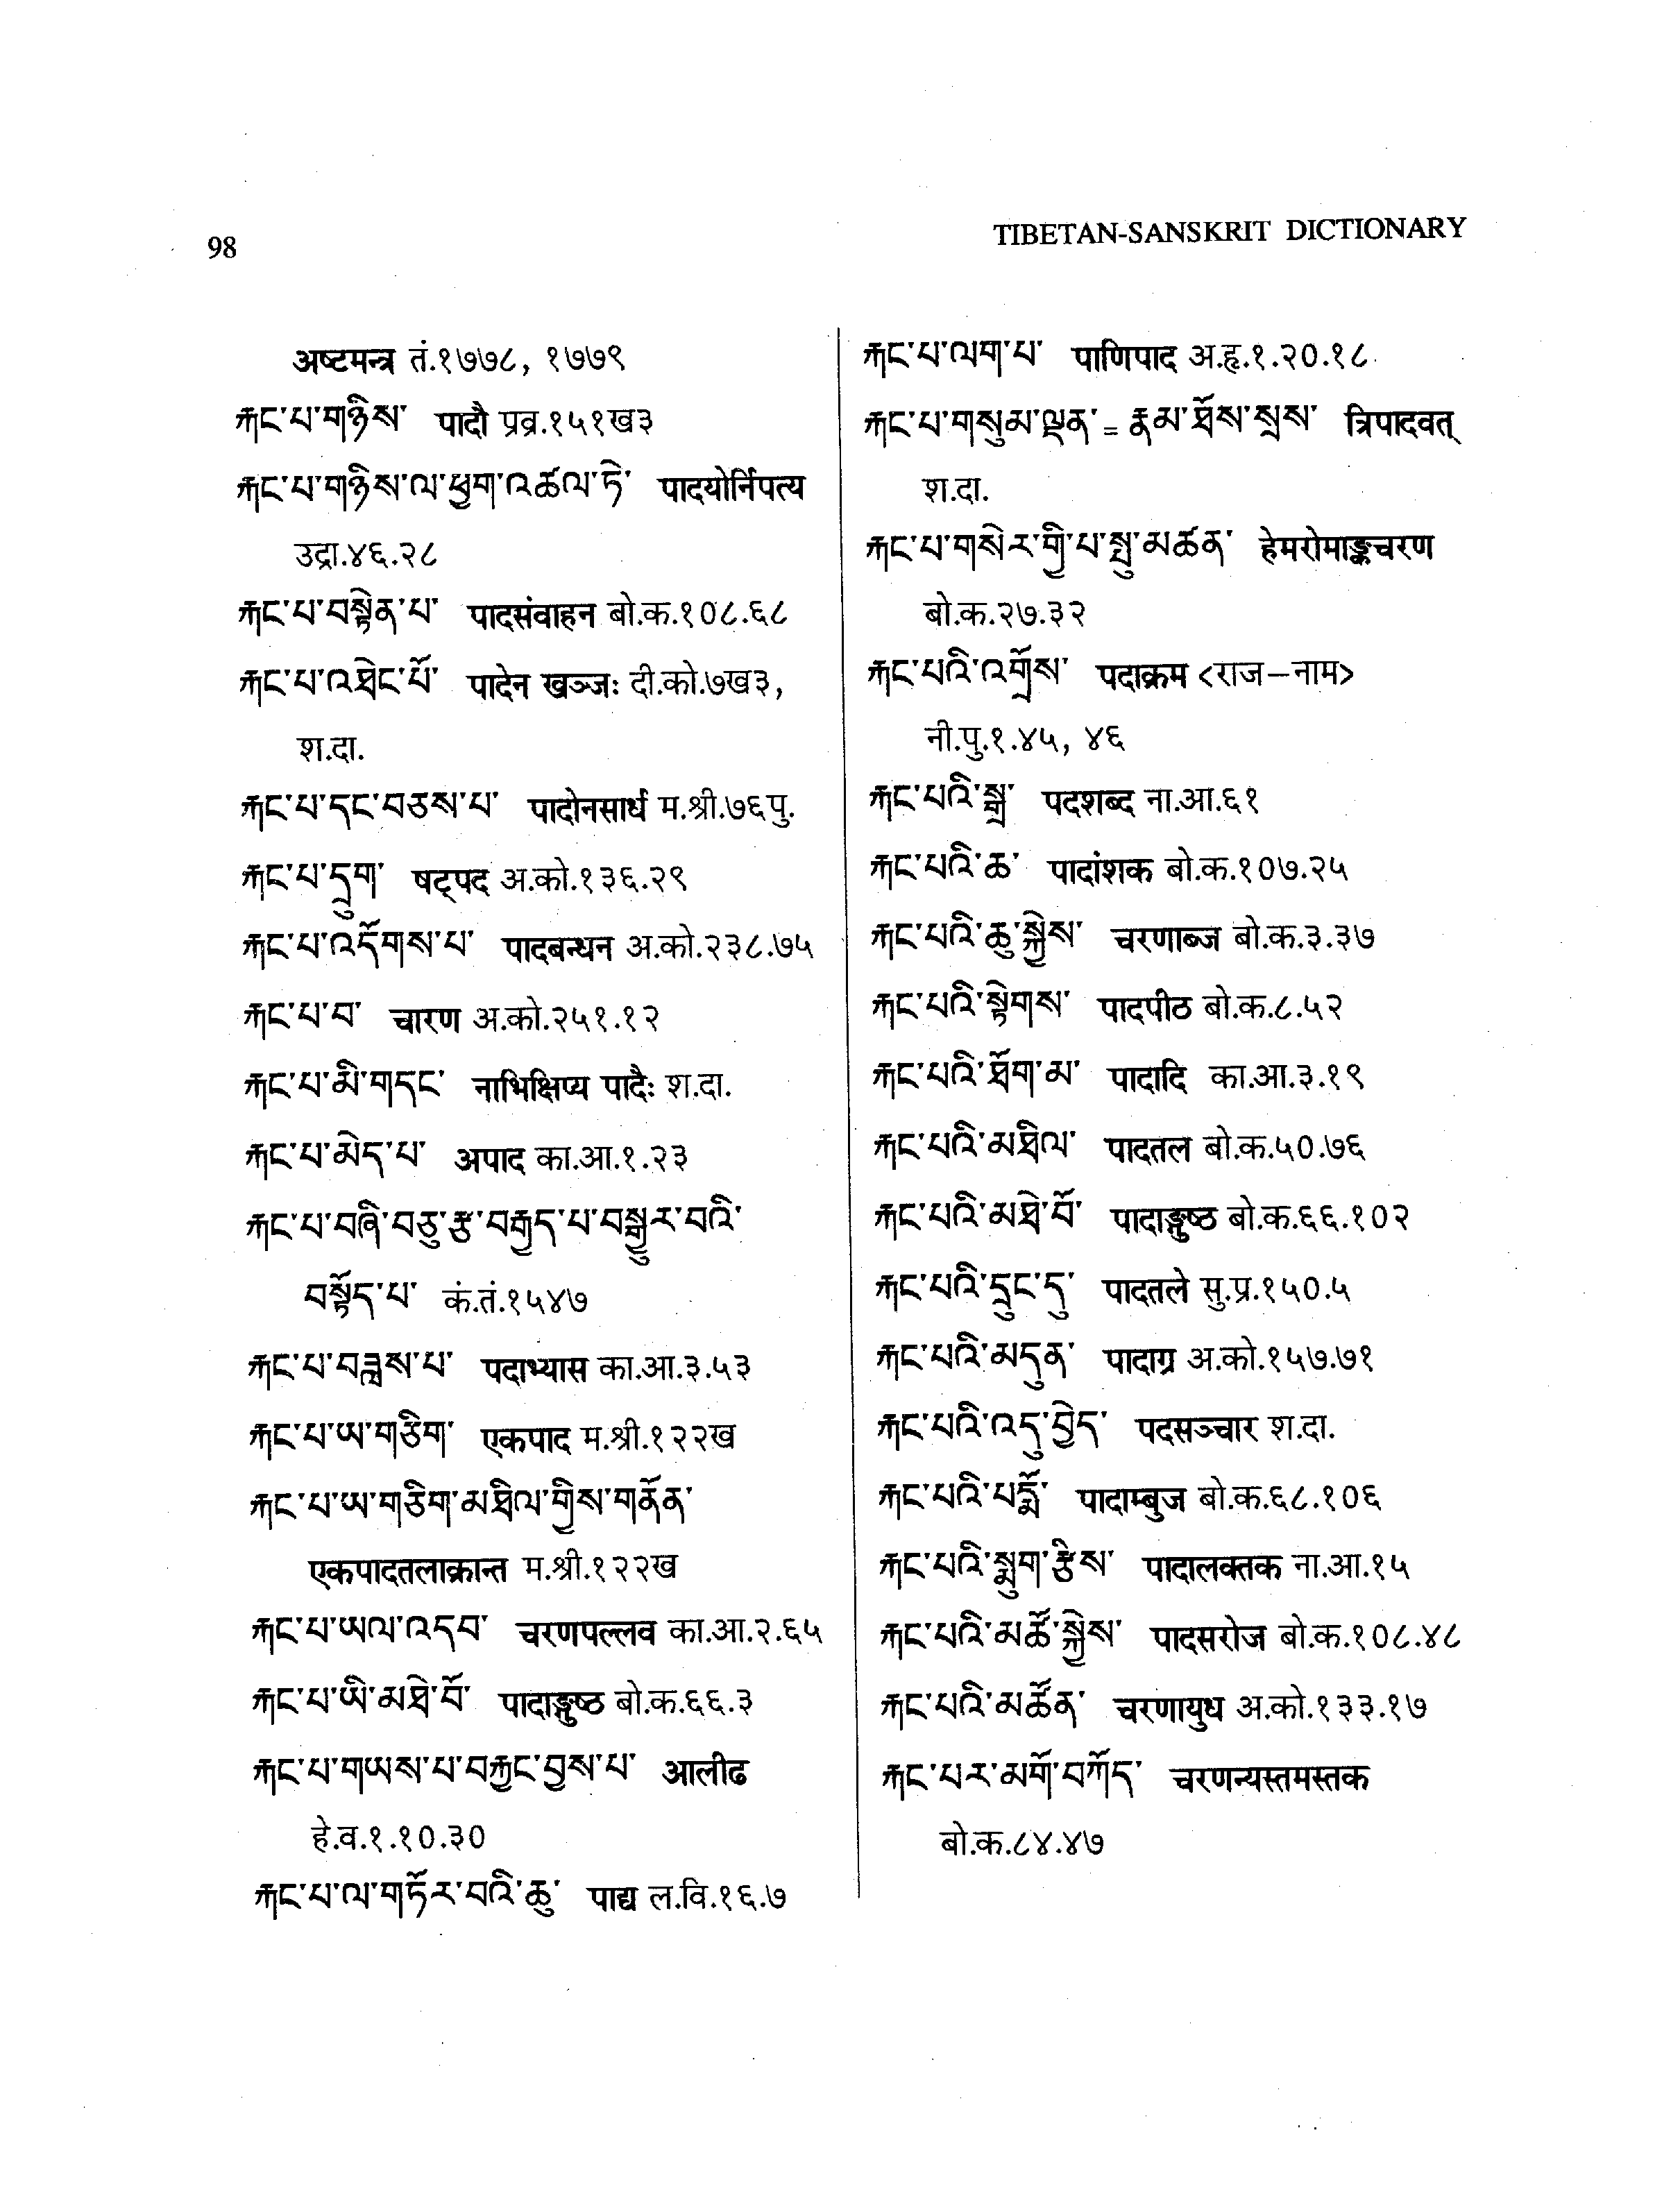 98
TIBETAN-SANSKRIT DICTIONARY
अष्टमन्त्र तं.१७७८, १७७९
རྐང་པ་གཉིས་ पादौ प्रव्र.१५१ख३
རྐང་པ་གཉིས་ལ་ཕྱག་འཚལ་ཏེ་ पादयोर्निपत्य
उद्रा.४६.२८
རྐང་པ་བསྟེན་པ་ पादसंवाहन बो.क.१०८.६८
རྐང་པ་འཐེང་པོ་ पादेन खञ्जः दी.को.७ख३,
श.दा.
རྐང་པ་དང་བཅས་པ་ पादोनसार्ध म.श्री.७६पु.
རྐང་པ་དྲུག་ षट्पद अ.को.१३६.२९
རྐང་པ་འདོགས་པ་ पादबन्धन अ.को.२३८.७५
རྐང་པ་བ་ चारण अ.को.२५१.१२
རྐང་པ་མི་གདང་ नाभिक्षिप्य पादैः श.दा.
རྐང་པ་མེད་པ་ अपाद का.आ.१.२३
རྐང་པ་བཞི་བཅུ་རྩ་བརྒྱད་པ་བསྒྱུར་བའི་
བསྟོད་པ་ कं.तं.१५४७
རྐང་པ་བཟླས་པ་ पदाभ्यास का.आ.३.५३
རྐང་པ་ཡ་གཅིག་ एकपाद म.श्री.१२२ख
རྐང་པ་ཡ་གཅིག་མཐིལ་གྱིས་གནོན་
एकपादतलाक्रान्त म.श्री.१२२ख
རྐང་པ་ཡལ་འདབ་ चरणपल्लव का.आ.२.६५
རྐང་པ་ཡི་མཐེ་བོ་ पादाङ्गुष्ठ बो.क.६६.३
རྐང་པ་གཡས་པ་བརྐྱང་བྱས་པ་ आलीढ
हे.व.१.१०.३०
རྐང་པ་ལ་གཏོར་བའི་ཆུ་ पाद्य ल.वि.१६.७
རྐང་པ་ལག་པ་ पाणिपाद अ.हृ.१.२०.१८
རྐང་པ་གསུམ་ལྡན་ = རྣམ་ཐོས་སྲས་ त्रिपादवत्
श.दा.
རྐང་པ་གསེར་གྱི་པ་སྤུ་མཚན་ हेमरोमाङ्कचरण
बो.क.२७.३२
རྐང་པའི་འགྲོས་ पदाक्रम <राज–नाम>
नी.पु.१.४५, ४६
རྐང་པའི་སྒྲ་ पदशब्द ना.आ.६१
རྐང་པའི་ཆ་ पादांशक बो.क.१०७.२५
རྐང་པའི་ཆུ་སྐྱེས་ चरणाब्ज बो.क.३.३७
རྐང་པའི་སྟེགས་ पादपीठ बो.क.८.५२
རྐང་པའི་ཐོག་མ་ पादादि का.आ.३.१९
རྐང་པའི་མཐིལ་ पादतल बो.क.५०.७६
རྐང་པའི་མཐེ་བོ་ पादाङ्गुष्ठ बो.क.६६.१०२
རྐང་པའི་དྲུང་དུ་ पादतले सु.प्र.१५०.५
རྐང་པའི་མདུན་ पादाग्र अ.को.१५७.७१
རྐང་པའི་འདུ་བྱེད་ पदसञ्चार श.दा.
རྐང་པའི་པདྨོ་ पादाम्बुज बो.क.६८.१०६
རྐང་པའི་སྨུག་རྩིས་ पादालक्तक ना.आ.१५
རྐང་པའི་མཚོ་སྐྱེས་ पादसरोज बो.क.१०८.४८
རྐང་པའི་མཚོན་ चरणायुध अ.को.१३३.१७
རྐང་པར་མགོ་བཀོད་ चरणन्यस्तमस्तक
बो.क.८४.४७